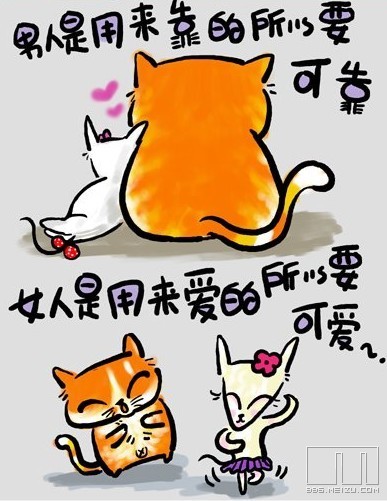 男人是用来靠的所以要
可靠
女人是用来爱的所以要
可爱~.
BBS.MEIZU.COM